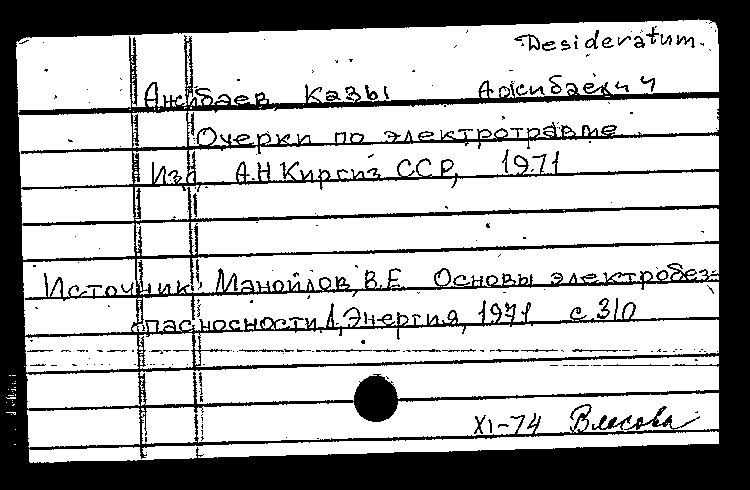 Desideratum.
Ажибаев Казы Ажибаевич
Очерки по электротравме
Изд. А.Н. Киргиз ССР, 1971
Источник: Манойлов, В.Е Основы электробез-
опасносности, Л, Энергия, 1971 с. 310
XI-74 Власова